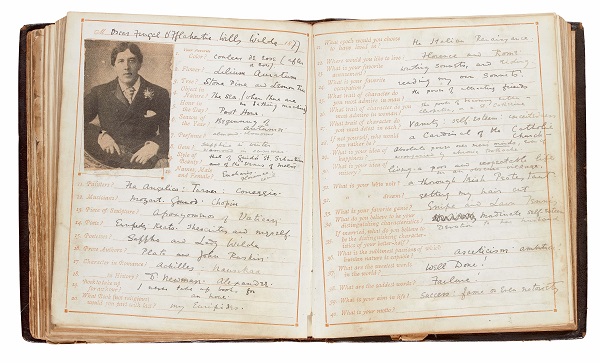 Oscar Fingal O'Flahertie Wills Wilde 1877
Your Favourite
1. Color?
2. Flower? Lilium Auratum
3. Tree? Stone Pine and Lemon Tree
4. Object in Nature? The Sea (when there are no bathing machines)
5. Hour in the Day? Post Hour
6. Season of the Year? Beginning of autumn
7. Perfume? almond blossom
8. Gem? Sapphire in winter
diamond in summer
9. Style of Beauty? that of Guido's St. Sebastian
and of the Venus of Melos
10. Names, Male and Female?
11. Painters? Fra Angelico: Turner: Correggio
12. Musicians? Mozart. Gounod. Chopin
13. Piece of Sculpture? Apoxyomenos of Vatican
14. Poets? Euripides, Keats, Theocritus and myself
15. Poetesses? Sappho and Lady Wilde
16. Prose Authors? Plato and John Ruskin
17. Character in Romance? Achilles. Nausikaa
18. in History? J. Newman. Alexander.
19. Book to take up for an hour? I never take up books for an hour
20. What Book (not religious) would you part with last? my Euripides
21. What epoch would you choose to have lived in? the Italian Renaissance
22. Where would you like to live? Florence and Rome
23. What is your favorite amusement? writing sonnets, and riding
24. What is your favorite occupation? reading my own sonnets
25. What trait of character do you most admire in man? the power of attracting friends
26. What trait of character do you most admire in woman?
27. What trait of character do you most detest in each? Vanity: self esteem: conceitedness
28. If not yourself, who would you rather be? a Cardinal of the Catholic Church
29. What is your idea of happiness? absolute power over men's minds, even if
30. What is your idea of misery? living a poor and respectable life
in an obscure village
32. What is your bête noire? a thorough Irish Protestant
What is your dream? getting my hair cut
33. What is your favorite game? Snipe and Lawn Tennis
34. What do you believe to be your distinguishing characteristics? inordinate self esteem
36. What is the sublimest passion of which human nature is capable? asceticism ambition
37. What are the sweetest words in the world? Well Done!
38. What are the saddest words? Failure!
39. What is your aim in life? success: fame or even notoriety
40. What is your motto?